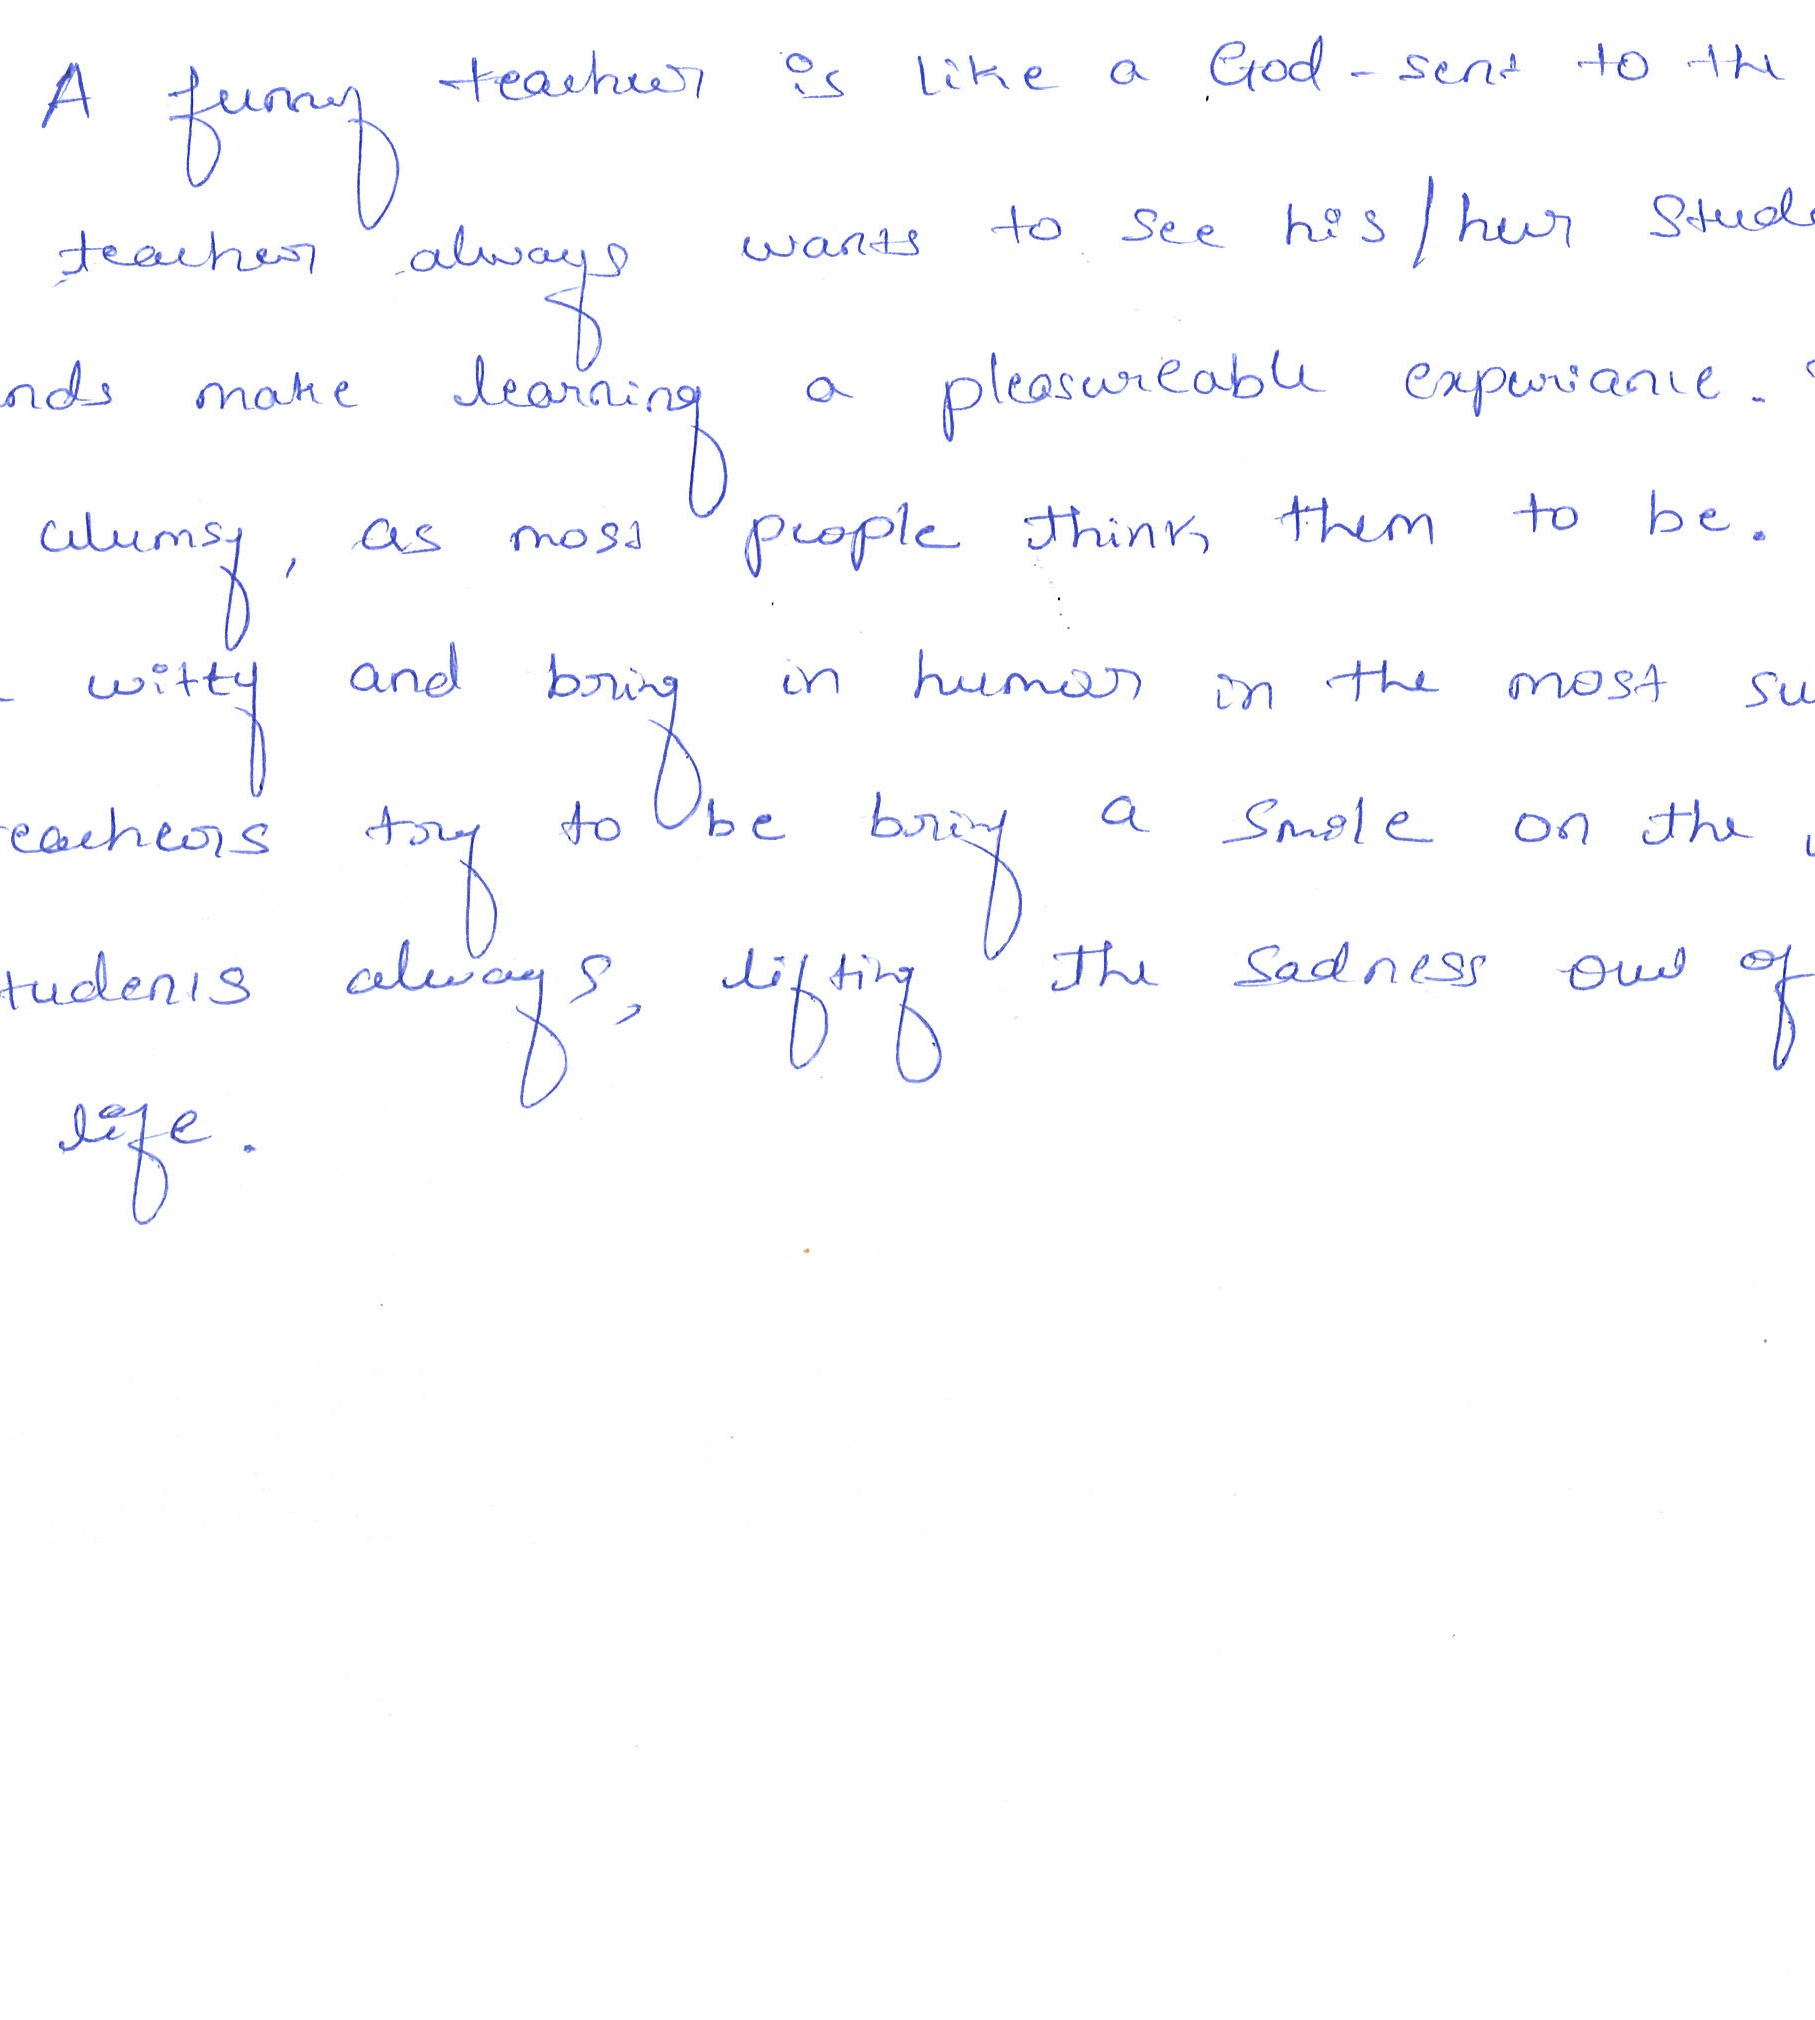 A funny teacher is like a God-sent to the
teacher always wants to see his/her Stude
nds make learning a pleasureable experiance.
clumsy, as most people think them to be.
witty and bring in humor in the most su
eachers try to be bring a smile on the
tudents always, lifting the sadness out of
life.